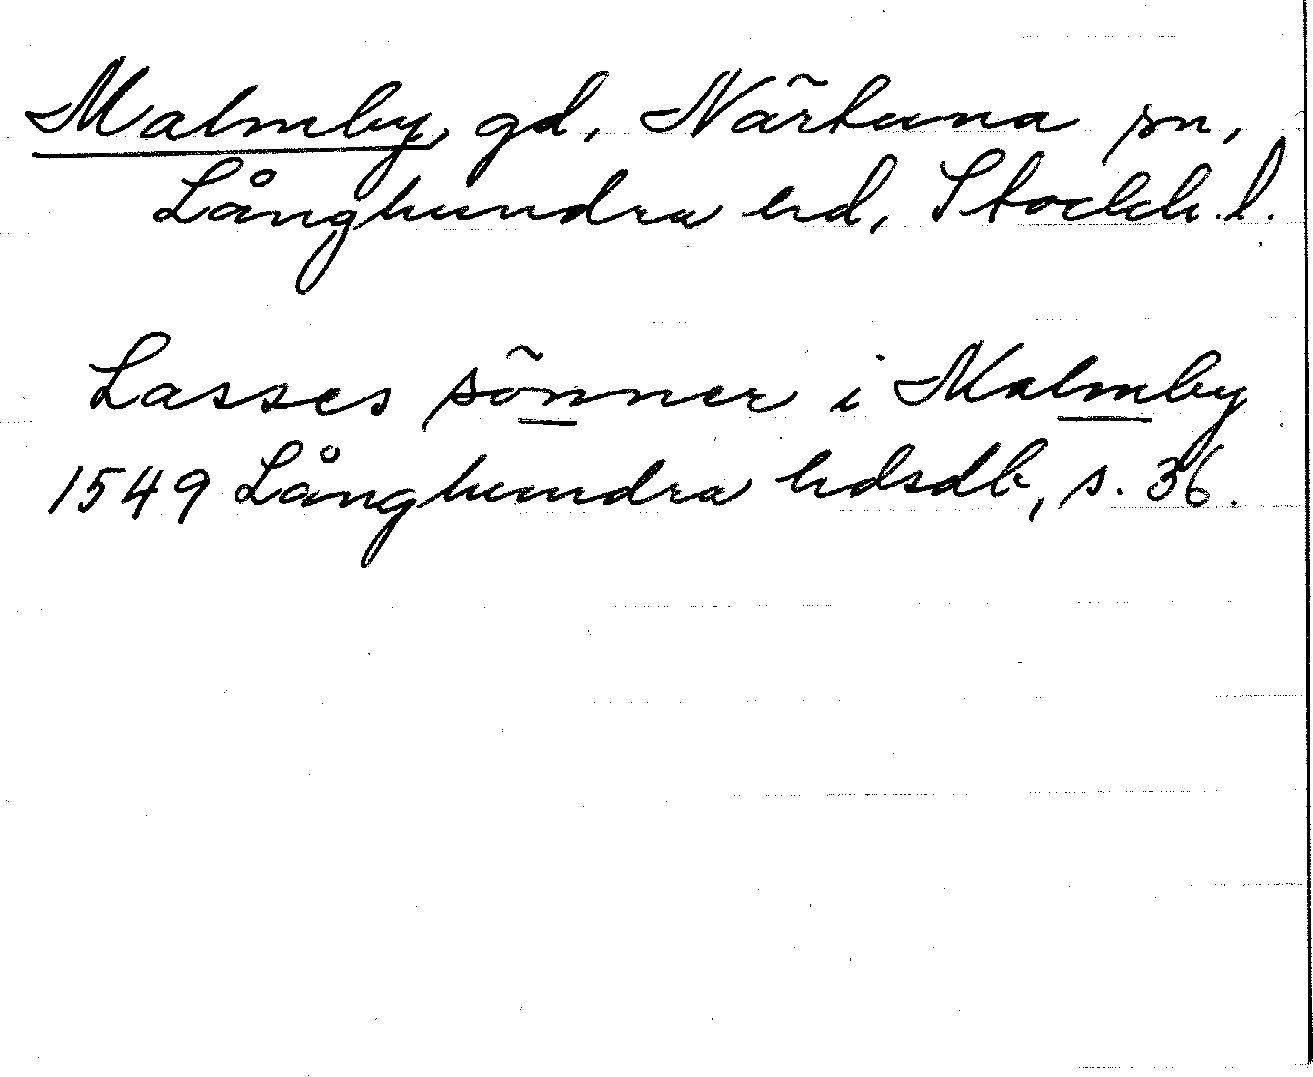 Malmby, gd, Närtuna sn,
Långhundra hd, Stockh. l.
Lasses sönner i Malmby
1549 Långhundra hdsdb, s. 36.